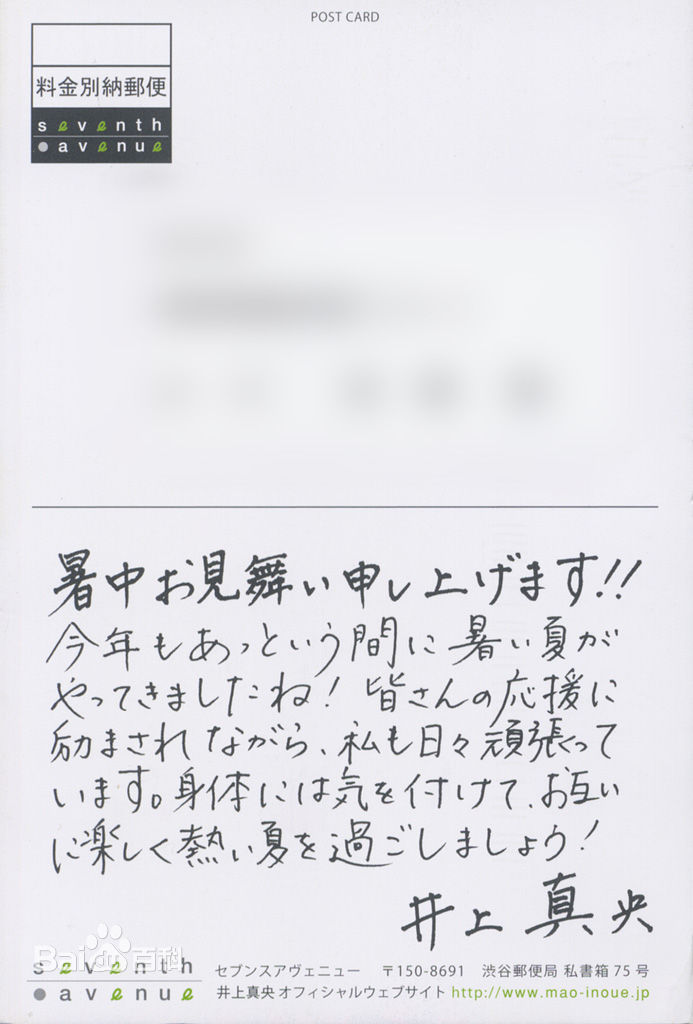 POST CARD
料金別納郵便
seventh
avenue
暑中お見舞い申し上げます!!
今年もあっという間に暑い夏が
やってきましたね!皆さんの応援に
励まされながら、私も日々頑張って
います。身体には気を付けて、お互い
に楽しく熱い夏を過ごしましょう!
井上真央
Bai百科
seventh
avenue
セブンスアヴェニュー 〒150-8691 渋谷郵便局 私書箱 75 号
井上真央 オフィシャルウェブサイト http://www.mao-inoue.jp